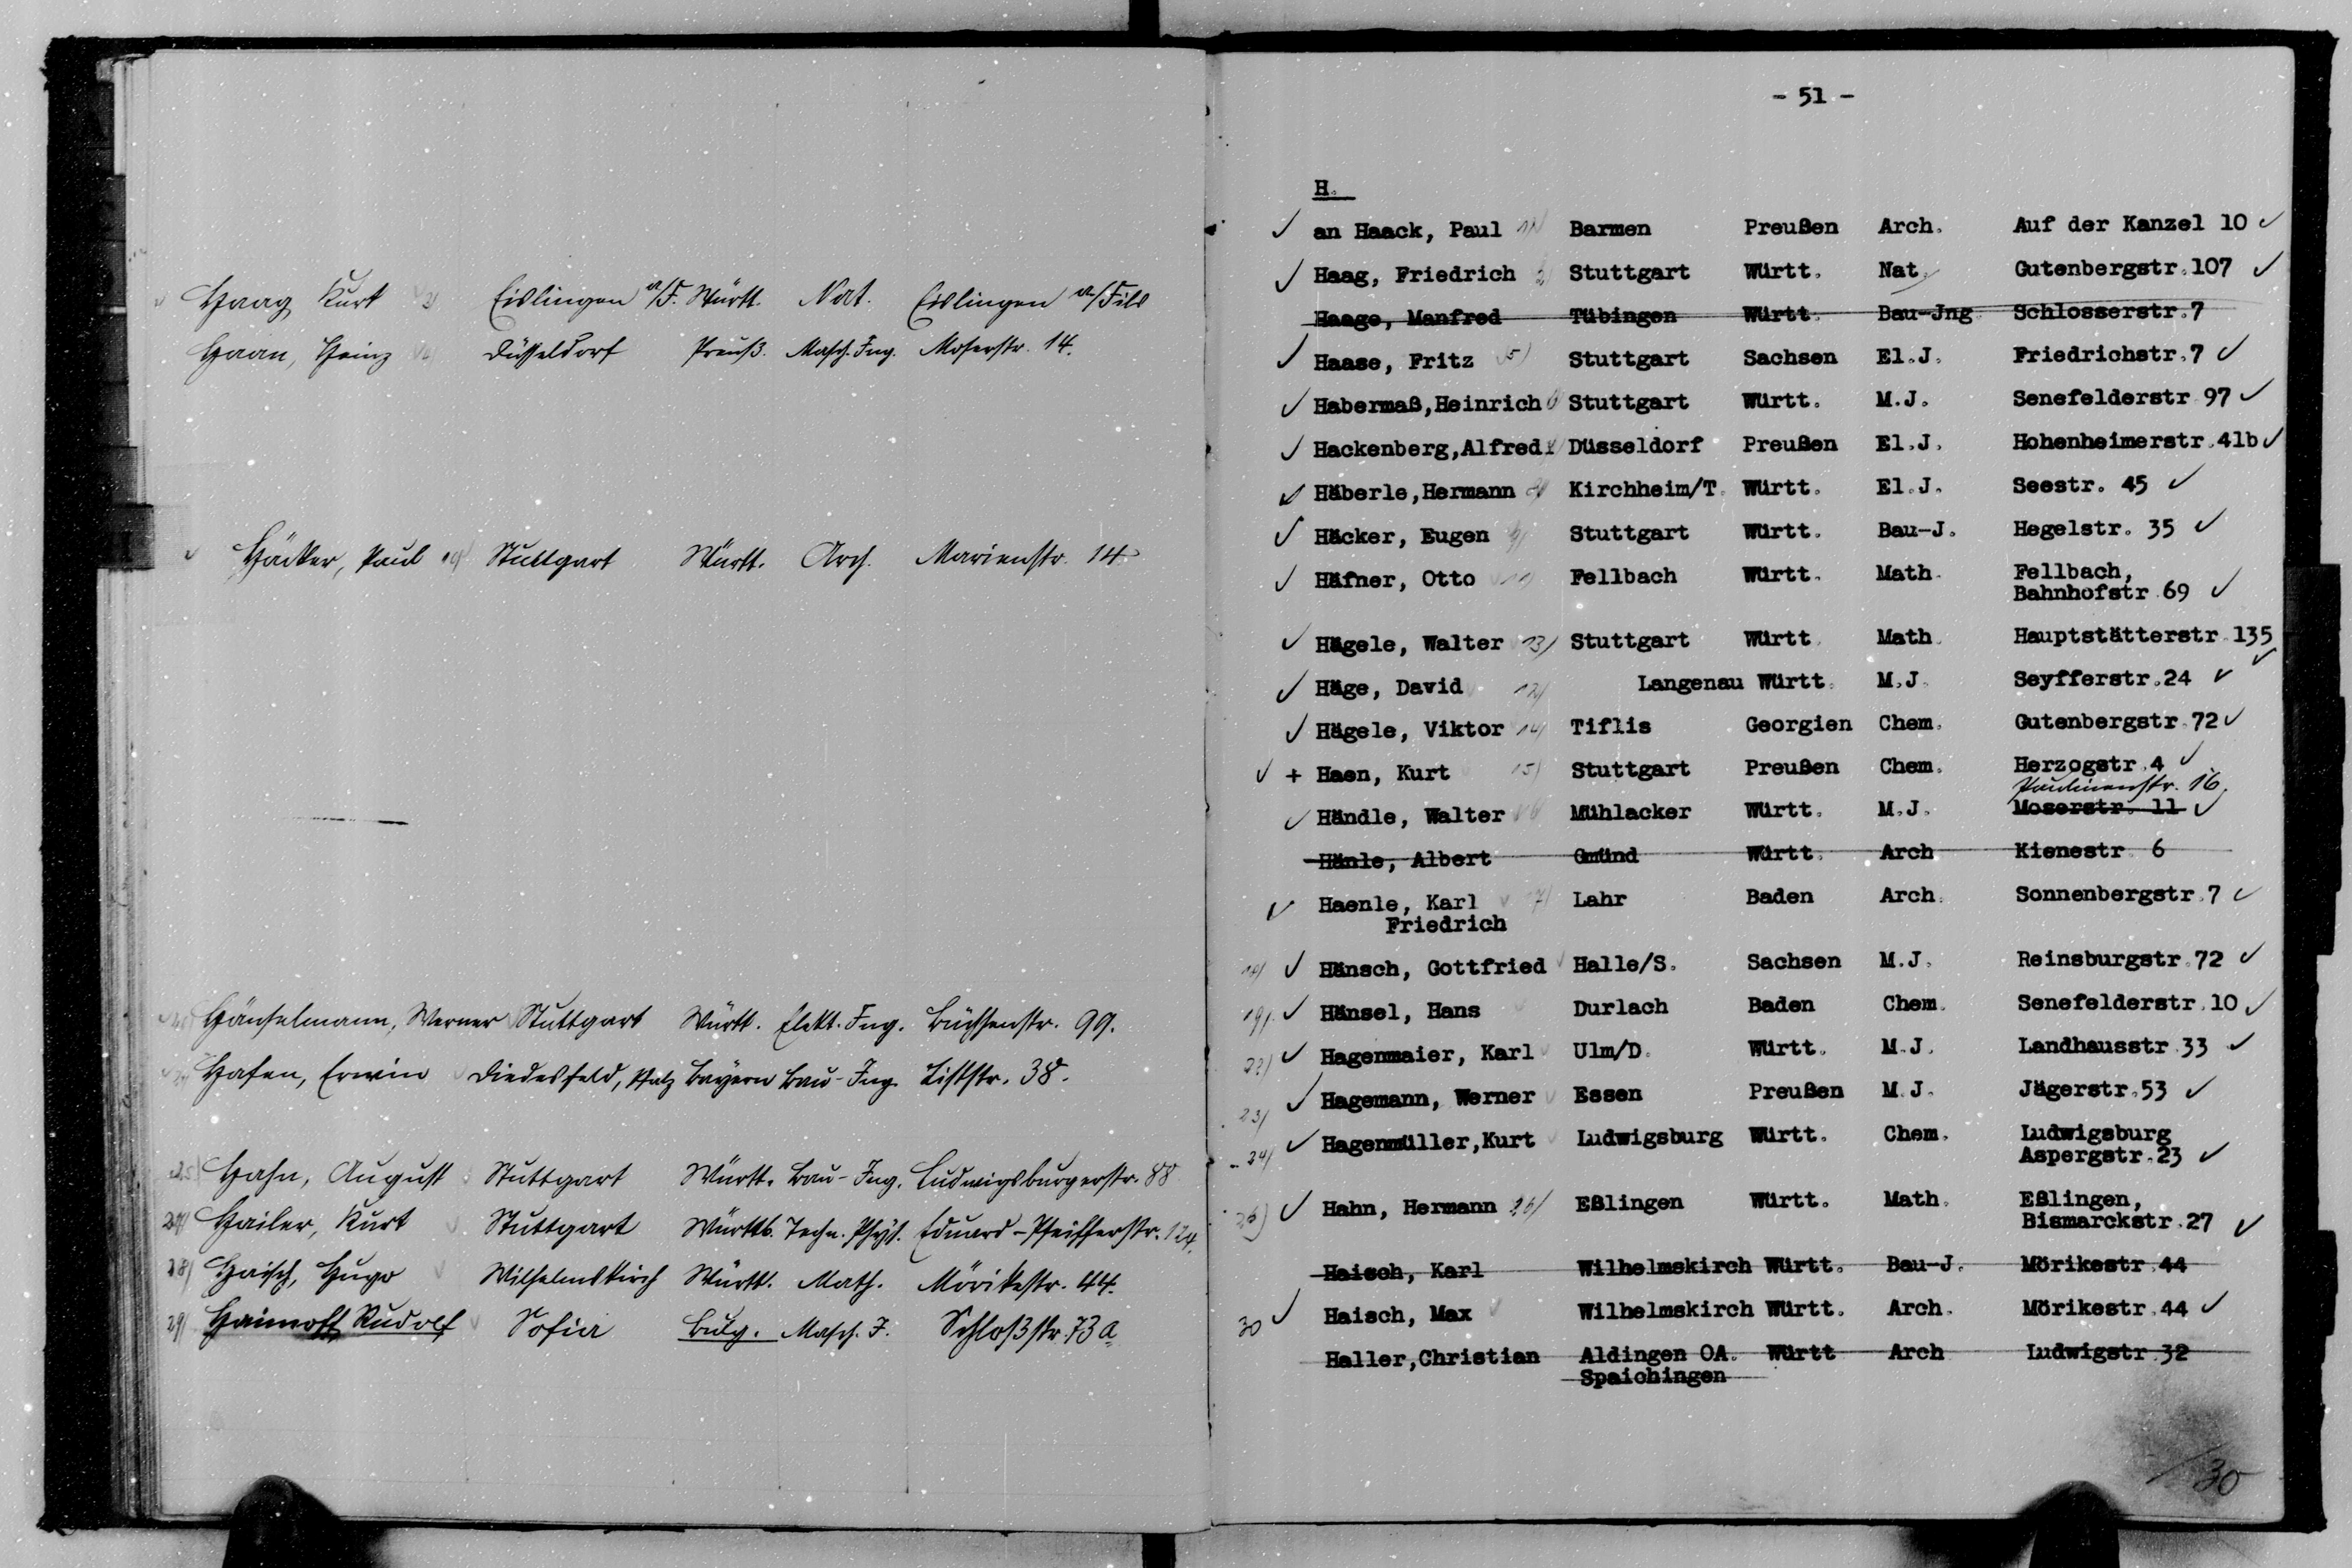 Haag Kurt Eislingen a/F. Württ. Nat. Eislingen a/Fils
Haan, Heinz Düsseldorf Preuß. Masch. Ing. Moserstr. 14.
Häcker, Paul Stuttgart Württ. Arch. Marienstr. 14
Hänselmann, Werner Stuttgart Württ. Elekt. Ing. Büchsenstr. 99.
Hafen, Erwin Diedesfeld, Pfalz Bayern Bau-Ing. Liststr. 38.
25) Hahn, August Stuttgart Württ. Bau-Ing. Ludwigsburgerstr. 88
27) Hailer, Kurt Stuttgart Württb. Techn. Phys. Eduard-Pfeifferstr. 124.
28) Haisch, Hugo Wilhelmskirch Württ. Math. Mörikestr. 44.
29) Haimoff Rudolf Sofia Bulg. Masch. I. Schloßstr. 73a
- 51 -
H.
✓ an Haack, Paul 1) Barmen Preußen Arch. Auf der Kanzel 10 ✓
✓ Haag, Friedrich 2) Stuttgart Württ. Nat. Gutenbergstr. 107 ✓
Haage, Manfred Tübingen Württ. Bau-Jng. Schlosserstr. 7
✓ Haase, Fritz 5) Stuttgart Sachsen El.J. Friedrichstr. 7 ✓
✓ Habermaß, Heinrich Stuttgart Württ. M.J. Senefelderstr. 97 ✓
✓ Hackenberg, Alfred Düsseldorf Preußen El.J. Hohenheimerstr. 41b ✓
✓ Häberle, Hermann Kirchheim/T. Württ. El.J. Seestr. 45 ✓
✓ Häcker, Eugen 9) Stuttgart Württ. Bau-J. Hegelstr. 35 ✓
✓ Häfner, Otto 11) Fellbach Württ. Math. Fellbach,
Bahnhofstr. 69 ✓
✓ Hägele, Walter 13) Stuttgart Württ. Math. Hauptstätterstr. 135 ✓
✓ Häge, David 12) Langenau Württ. M.J. Seyfferstr. 24 ✓
✓ Hägele, Viktor 14) Tiflis Georgien Chem. Gutenbergstr. 72 ✓
✓ + Haen, Kurt 15) Stuttgart Preußen Chem. Herzogstr. 4 ✓
Paulinenstr. 16.
✓ Händle, Walter Mühlacker Württ. M.J. Moserstr. 11 ✓
Hänle, Albert Gmünd Württ. Arch. Kienestr. 6
✓ Haenle, Karl 17) Lahr Baden Arch. Sonnenbergstr. 7 ✓
Friedrich
18) ✓ Hänsch, Gottfried Halle/S. Sachsen M.J. Reinsburgstr. 72 ✓
19) ✓ Hänsel, Hans Durlach Baden Chem. Senefelderstr. 10 ✓
22) ✓ Hagenmaier, Karl Ulm/D. Württ. M.J. Landhausstr. 33 ✓
23) ✓ Hagemann, Werner Essen Preußen M.J. Jägerstr. 53 ✓
24) ✓ Hagenmüller, Kurt Ludwigsburg Württ. Chem. Ludwigsburg
Aspergstr. 23 ✓
26) ✓ Hahn, Hermann 26) Eßlingen Württ. Math. Eßlingen,
Bismarckstr. 27 ✓
Haisch, Karl Wilhelmskirch Württ. Bau-J. Mörikestr. 44
30 ✓ Haisch, Max Wilhelmskirch Württ. Arch. Mörikestr. 44 ✓
Haller, Christian Aldingen OA. Württ Arch Ludwigstr. 32
Spaichingen
/30